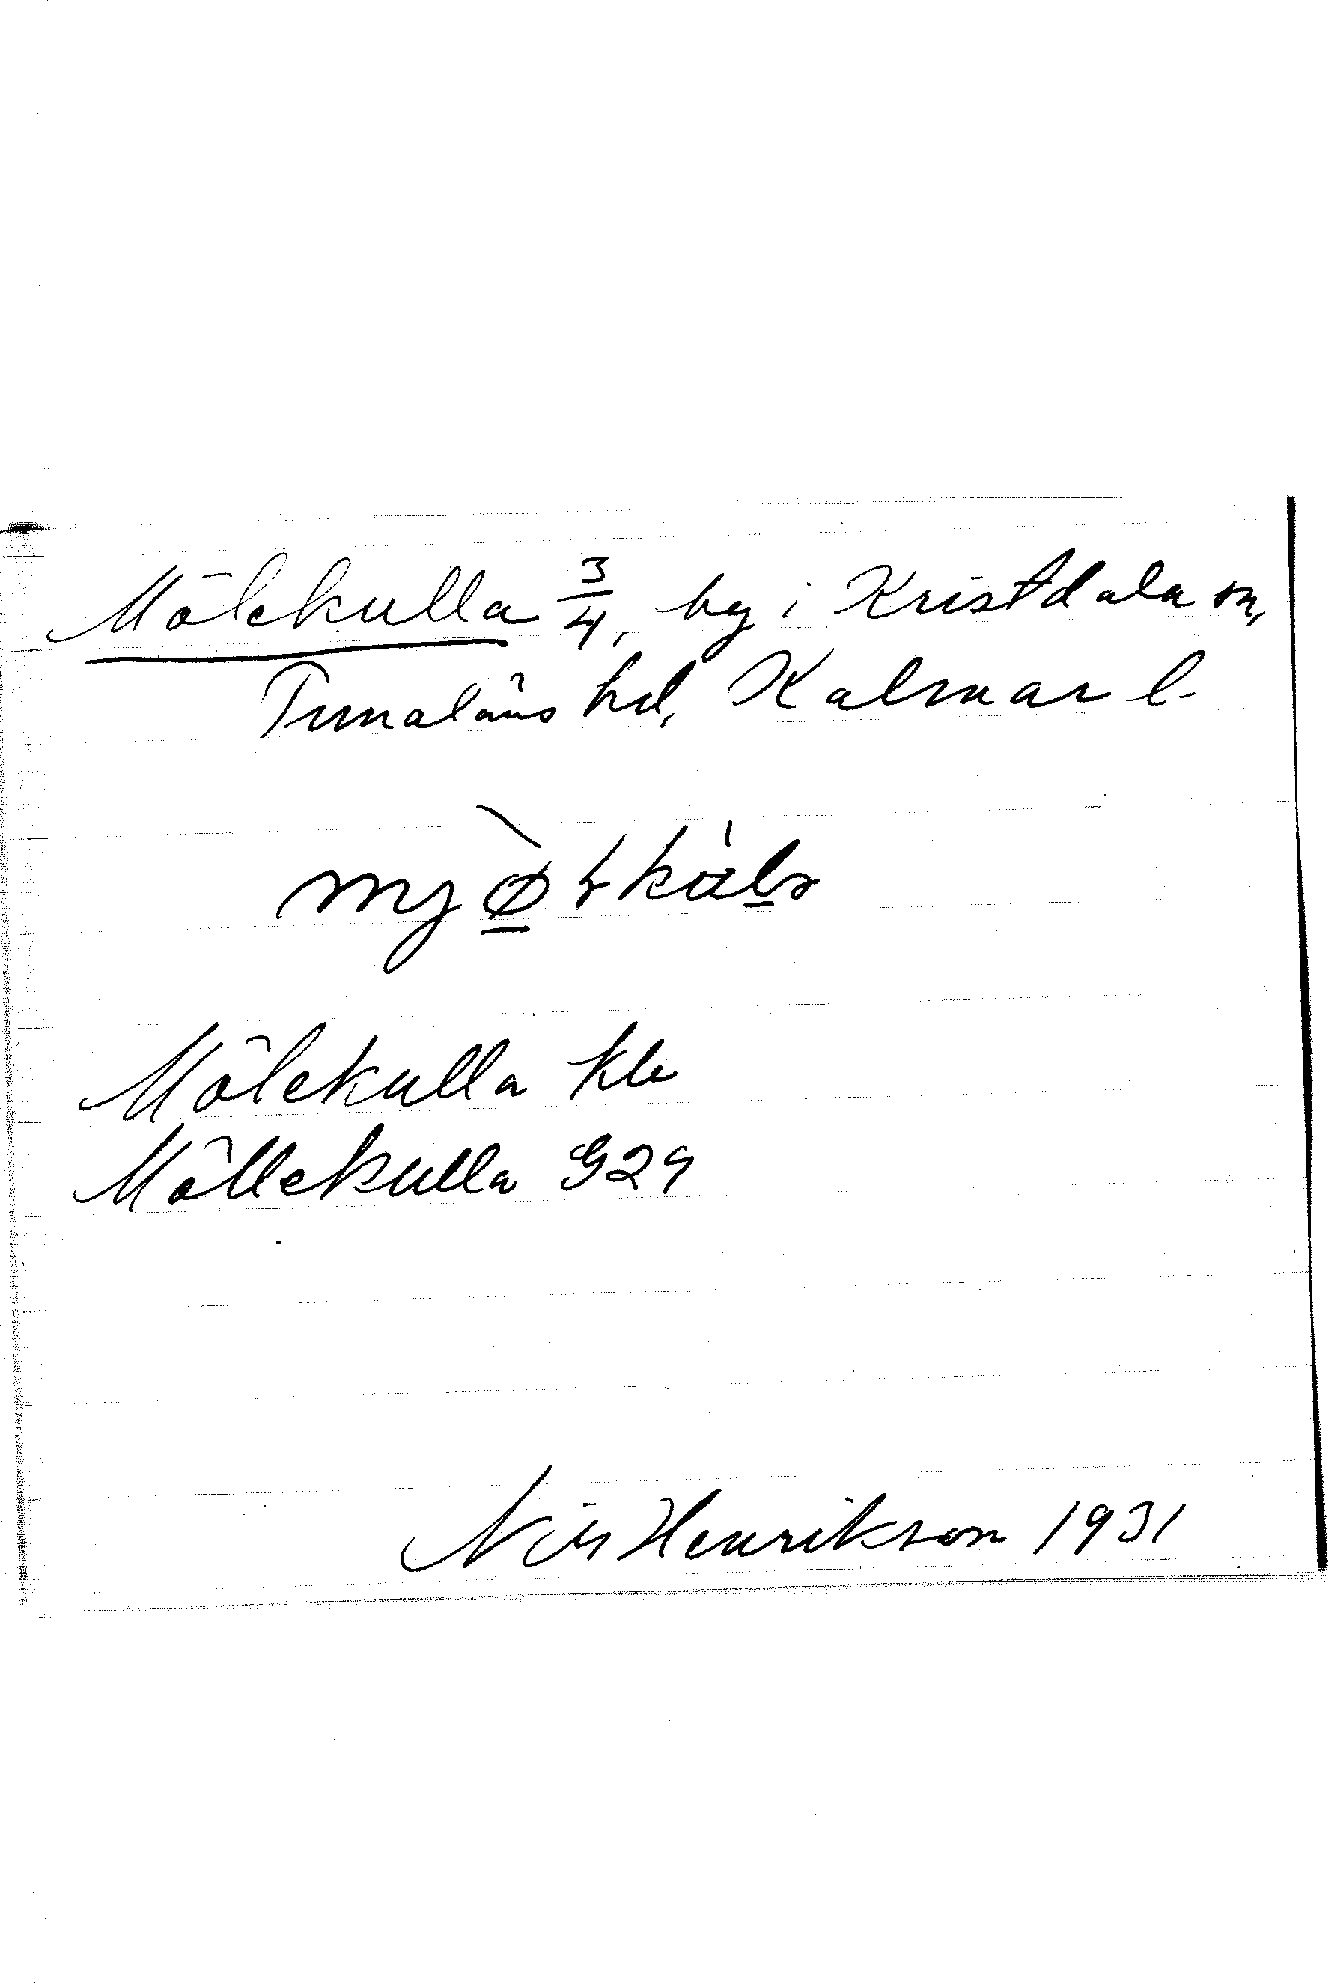 Mölekulla 3/4, by i Kristdala sn,
Tunaläns hd, Kalmar l.
Mölekulla kb
Möllekulla G29
Nils Henrikson 1931